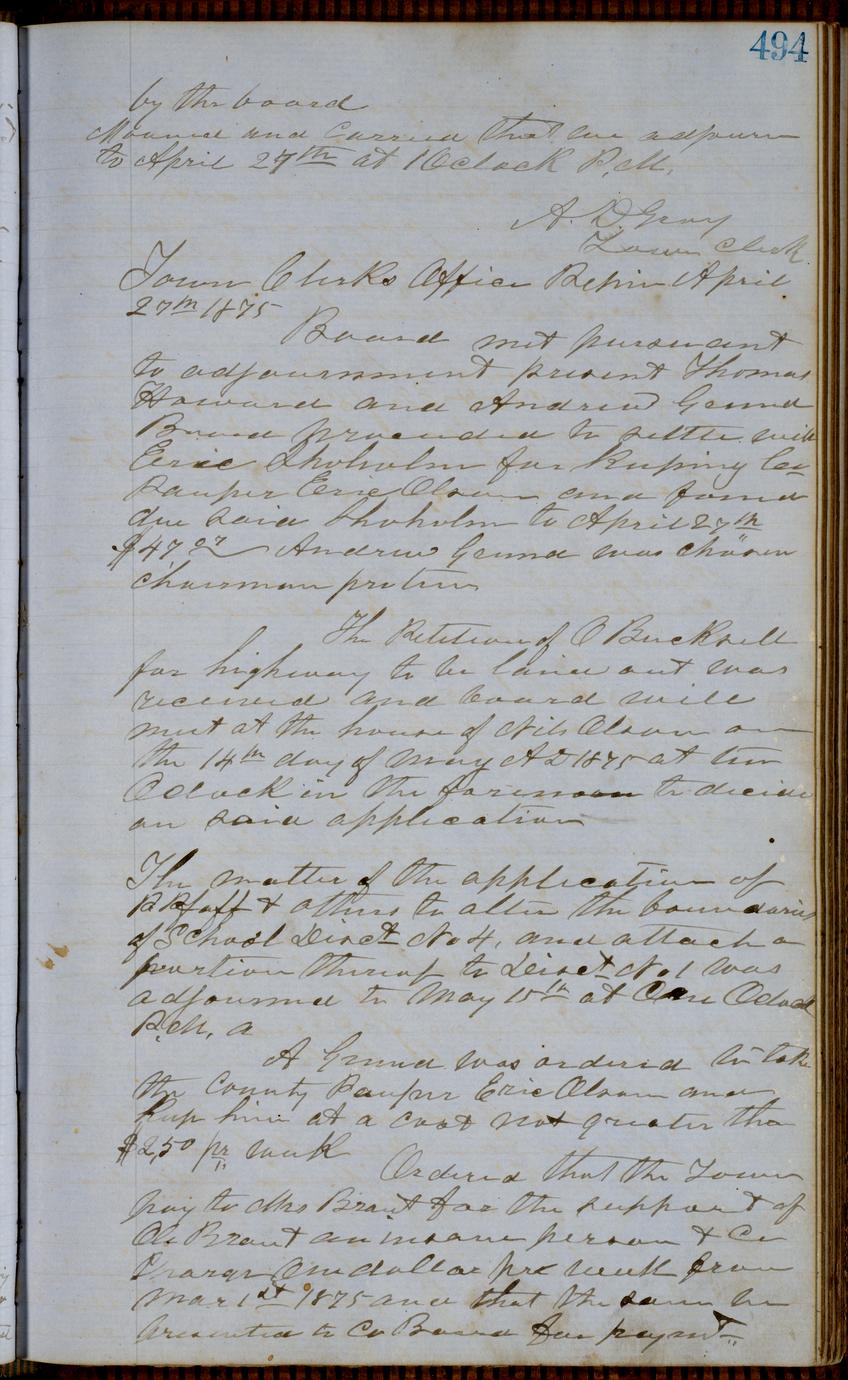 494
by the board
Mooved and Carried that we adjourn
to April 27th at 1 Oclock P.M.
A. D. Gray
Town Clerk
Town Clerks Office Pepin April
27th 1875
Board met pursuant
to adjournment present Thomas
Howard and Andrew Grund
Board proceeded to settle with
Eric Shoholm for Keeping Co
Pauper Eric Olson and found
due said Shoholm to April 27th
$47 07 Andrew Grund was chosen
Chairman protem
The Petition of O Bucksell
for highway to be laid out was
received and board will
meet at the house of Nils Olson on
the 14th day of May AD 1875 at ten
Oclock in the forenoon to decide
on said application
The matter of the application of
P Pfaff & others to alter the boundaries
of School Disct No 4, and attach a
portion thereof to Disct No 1 was
adjourned to May 15th at One Oclock
P.M. a
A Grund was ordered to take
the County Pauper Eric Olson and
Keep him at a cost not greater tha
$2,50 pr week
Ordered that the Town
pay to Mrs Brant for the support of
Ole Brant an insane person & Co
Charge One dollar per week from
Mar 1st 1875 and that the same be
presented to Co Board for paymt